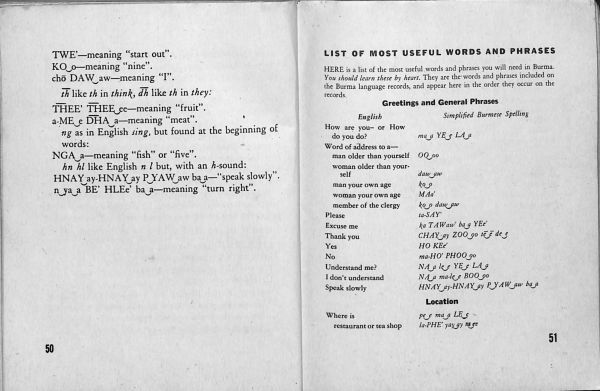 TWE'—meaning "start out".
KO͜o—meaning "nine".
chō DAW͜aw—meaning "I".
t͞h like th in think, d͞h like th in they:
T͞HEE' T͞HEE͜ee—meaning "fruit".
a-ME͜e D͞HA͜a—meaning "meat".
ng as in English sing, but found at the beginning of
words:
NGA͜a—meaning "fish" or "five".
hn hl like English n l but, with an h-sound:
HNAY͜ay-HNAY͜ay P͜YAW͜aw ba͜a—"speak slowly".
n͜ya͜a BE' HLEe' ba͜a—meaning "turn right".
50
LIST OF MOST USEFUL WORDS AND PHRASES
HERE is a list of the most useful words and phrases you will need in Burma.
You should learn these by heart. They are the words and phrases included on
the Burma language records, and appear here in the order they occur on the
records.
Greetings and General Phrases
English Simplified Burmese Spelling
How are you– or How
do you do? ma͜a YE͜e LA͜a
Word of address to a—
man older than yourself OO͜oo
woman older than your-
self daw͜aw
man your own age ko͜o
woman your own age MAa'
member of the clergy ko͜o daw͜aw
Please ta-SAY'
Excuse me
Thank you
Yes HO KEe'
No ma-HO' PHOO͜oo
Understand me? NA͜a le͜e YE͜e LA͜a
I don't understand NA͜a ma-le͜e BOO͜oo
Speak slowly HNAY͜ay-HNAY͜ay P͜YAW͜aw ba͜a
Location
Where is pe͜e ma͜a LE͜e
restaurant or tea shop la-PHE' yay͜ay
51